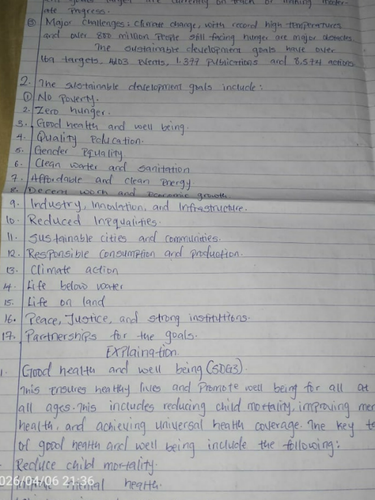 ate progress.
Major challenges; climate change, with record high temperatures
and over 800 million people still facing hunger are major obstacles
The sustainable development goals have over
169 targets, 4103 events, 1,377 publications and 8,574 actions
2. The sustainable development goals include:
① No poverty.
2. Zero hunger.
3. Good health and well being.
4. Quality education.
5. Gender Equality
6. Clean water and sanitation
7. Affordable and clean energy
8. Decent work and economic growth
9. Industry, Innovation, and Infrastructure.
10. Reduced Inequalities.
11. Sustainable cities and communities.
12. Responsible consumption and production.
13. Climate action
4. Life below water
15. Life on land
16. Peace, Justice, and strong institutions.
17. Partnerships for the goals.
Explaination
1. Good health and well being (SDG3)
This ensures healthy lives and promote well being for all at
all ages. This includes reducing child mortality, improving
health, and achieving universal health coverage. The key
of good health and well being include the following:
Reduce child mortality.
health.
026/04/06 21:36